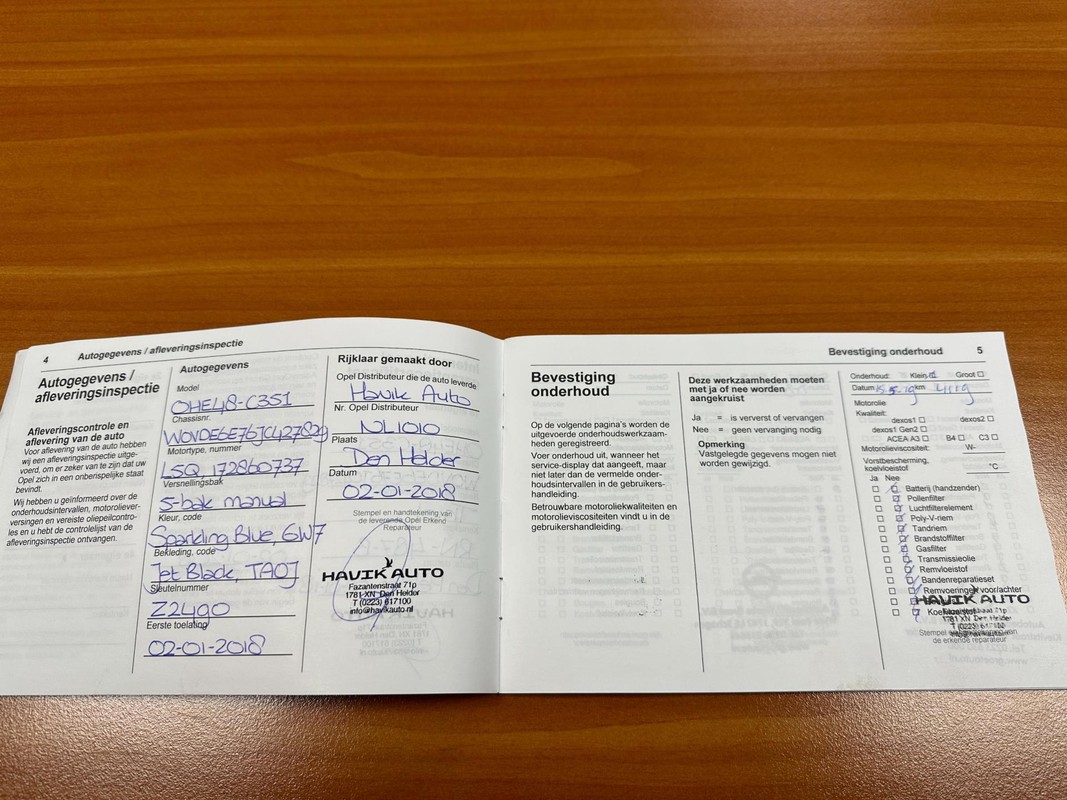 4 Autogegevens / afleveringsinspectie
Autogegevens /
afleveringsinspectie
Afleveringscontrole en
aflevering van de auto
Voor aflevering van de auto hebben
wij een afleveringsinspectie uitge-
voerd, om er zeker van te zijn dat uw
Opel zich in een onberispelijke staat
bevindt.
Wij hebben u geïnformeerd over de
onderhoudsintervallen, motoroliever-
versingen en vereiste oliepeilcontro-
les en u hebt de controlelijst van de
afleveringsinspectie ontvangen.
Autogegevens
Model
OHE48-C351
Chassisnr.
Motortype, nummer
L5Q, 172860737
Versnellingsbak
5-bak manual
Kleur, code
Sparkling Blue, GW7
Bekleding, code
Jet Black, TAOJ
Sleutelnummer
Z2490
Eerste toelating
02-01-2018
Rijklaar gemaakt door
Opel Distributeur die de auto leverde
Havik Auto
Nr. Opel Distributeur
NL1010
Plaats
Den Helder
Datum
02-01-2018
Stempel en handtekening van
de leverende Opel Erkend
Reparateur
HAVIK AUTO
Fazantenstraat 71p
1781 XN Den Helder
T (0223) 617100
info@havikauto.nl
Bevestiging onderhoud 5
Bevestiging
onderhoud
Op de volgende pagina's worden de
uitgevoerde onderhoudswerkzaam-
heden geregistreerd.
Voer onderhoud uit, wanneer het
service-display dat aangeeft, maar
niet later dan de vermelde onder-
houdsintervallen in de gebruikers-
handleiding.
Betrouwbare motoroliekwaliteiten en
motorolieviscositeiten vindt u in de
gebruikershandleiding.
Deze werkzaamheden moeten
met ja of nee worden
aangekruist
Ja = is ververst of vervangen
Nee = geen vervanging nodig
Opmerking
Vastgelegde gegevens mogen niet
worden gewijzigd.
Onderhoud: Klein Groot
Datum km
Motorolie
Kwaliteit:
dexos1 dexos2
dexos1 Gen2
ACEA A3 B4 C3
Motorolieviscositeit: W-
Vorstbescherming
koelvloeistof: °C
Ja Nee
Batterij (handzender)
Pollenfilter
Luchtfilterelement
Poly-V-riem
Tandriem
Brandstoffilter
Gasfilter
Transmissieolie
Remvloeistof
Bandenreparatieset
Remvoeringen voor/achter
HAVIK AUTO
Koelvloeistof
1781 XN Den Helder
T (0223) 617100
Stempel
de erkende reparateur